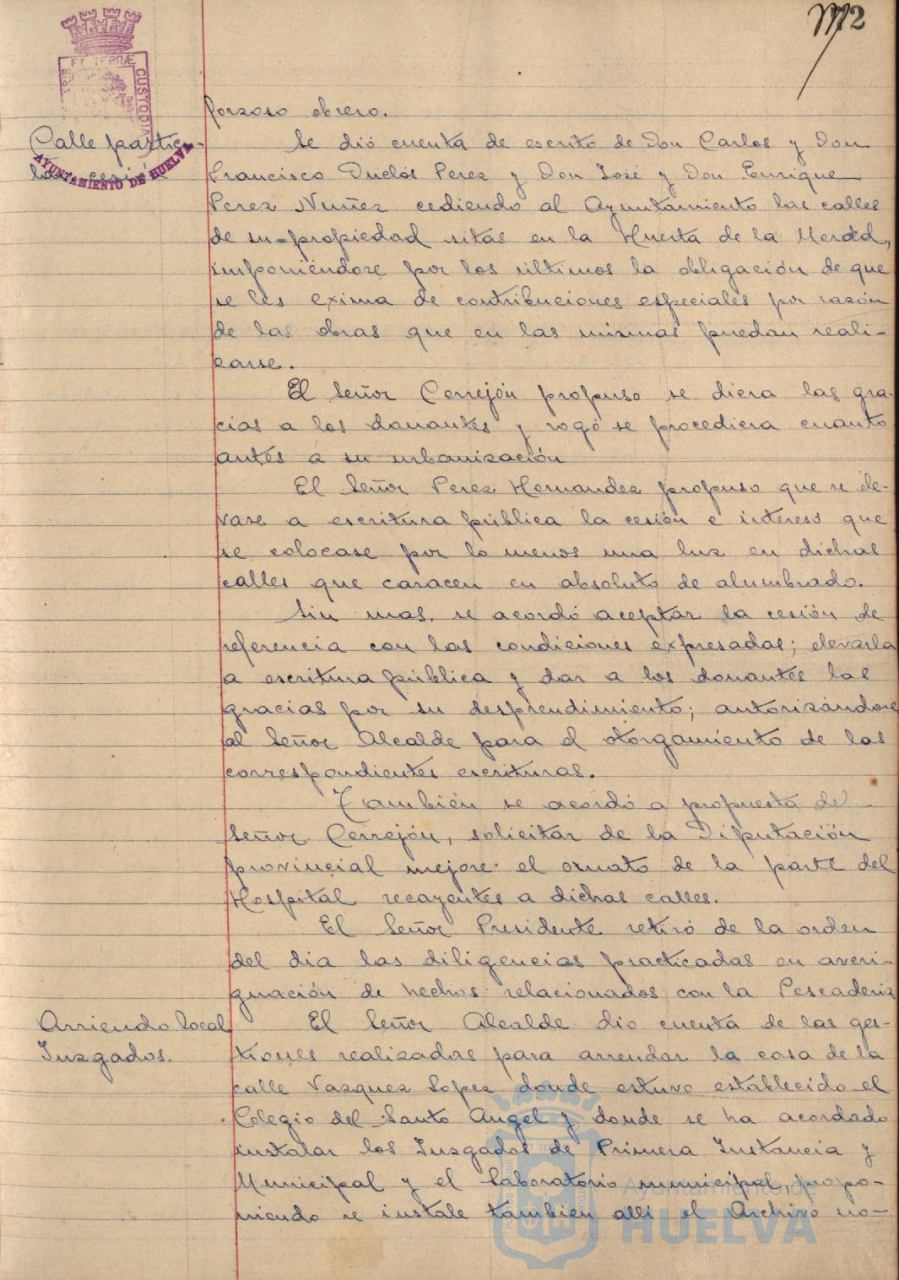 172
PORTUS MARIS ET TERRÆ CUSTODIA
AYUNTAMIENTO DE HUELVA
forzoso obrero.
Calle particu-
lar cesión
Se dió cuenta de escrito de Don Carlos y Don
Francisco Duclós Perez y Don José y Don Enrique
Perez Nuñez cediendo al Ayuntamiento las calles
de su propiedad sitas en la Huerta de la Merced,
imponiéndose por los ultimos la obligación de que
se les exima de contribuciones especiales por razón
de las obras que en las mismas puedan reali-
carse.
El Señor Cerrejón propuso se diera las gra-
cias a los donantes y rogó se procediera cuanto
antes a su urbanización
El Señor Perez Hernandez propuso que se ele-
vase a escritura pública la cesión e interesó que
se colocase por lo menos una luz en dichas
calles que caracen en absoluto de alumbrado.
Sin mas, se acordó aceptar la cesión de
referencia con las condiciones expresadas; elevarla
a escritura pública y dar a los donantes las
gracias por su desprendimiento; autorizándose
al Señor Alcalde para el otorgamiento de las
correspondientes escrituras.
También se acordó a propuesta del
Señor Cerrejón, solicitar de la Diputación
provincial mejore el ornato de la parte del
Hospital recayentes a dichas calles.
El Señor Presidente retiró de la orden
del dia las diligencias practicadas en averi-
guación de hechos relacionados con la Pescaderia
Arriendo local
Juzgados.
El Señor Alcalde dio cuenta de las ges-
tiones realizadas para arrendar la casa de la
calle Vazquez Lopez donde estuvo establecido el
Colegio del Santo Angel y donde se ha acordado
instalar los Juzgados de Primera Instancia y
Municipal y el Laboratorio municipal, propo-
niendo se instale tambien alli el Archivo no-
Ayuntamiento de
HUELVA